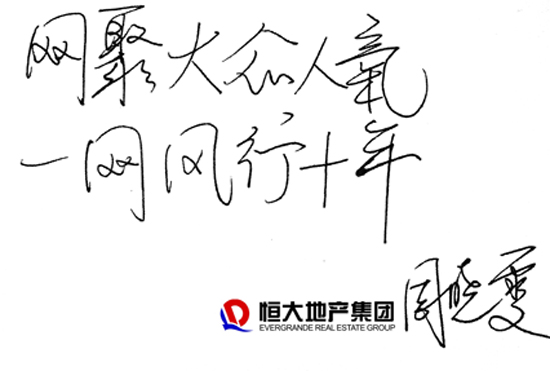 网聚大众人氣
一网风行十年
恒大地产集团
EVERGRANDE REAL ESTATE GROUP
周晓雯